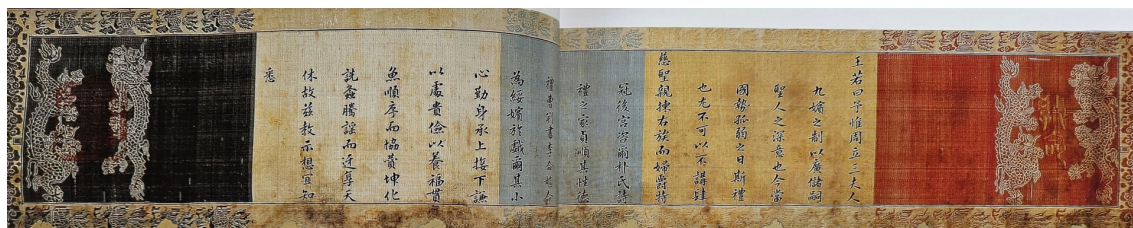 王若曰予惟周立三夫人
九嬪之制以廣儲嗣
聖人之深意也今當
國勢孤弱之日斯禮
也尤不可以不講肆
慈聖親揀右族而婦爵特
冠後宮咨爾朴氏詩
禮之家貞順其性
禮曹判書李命
為綏嬪於戲爾其小
心勤身承上接下謙
以處貴儉以養福貫
魚順序而協賛坤化
詵螽騰謠而迓天
休故玆教示想宜知
悉